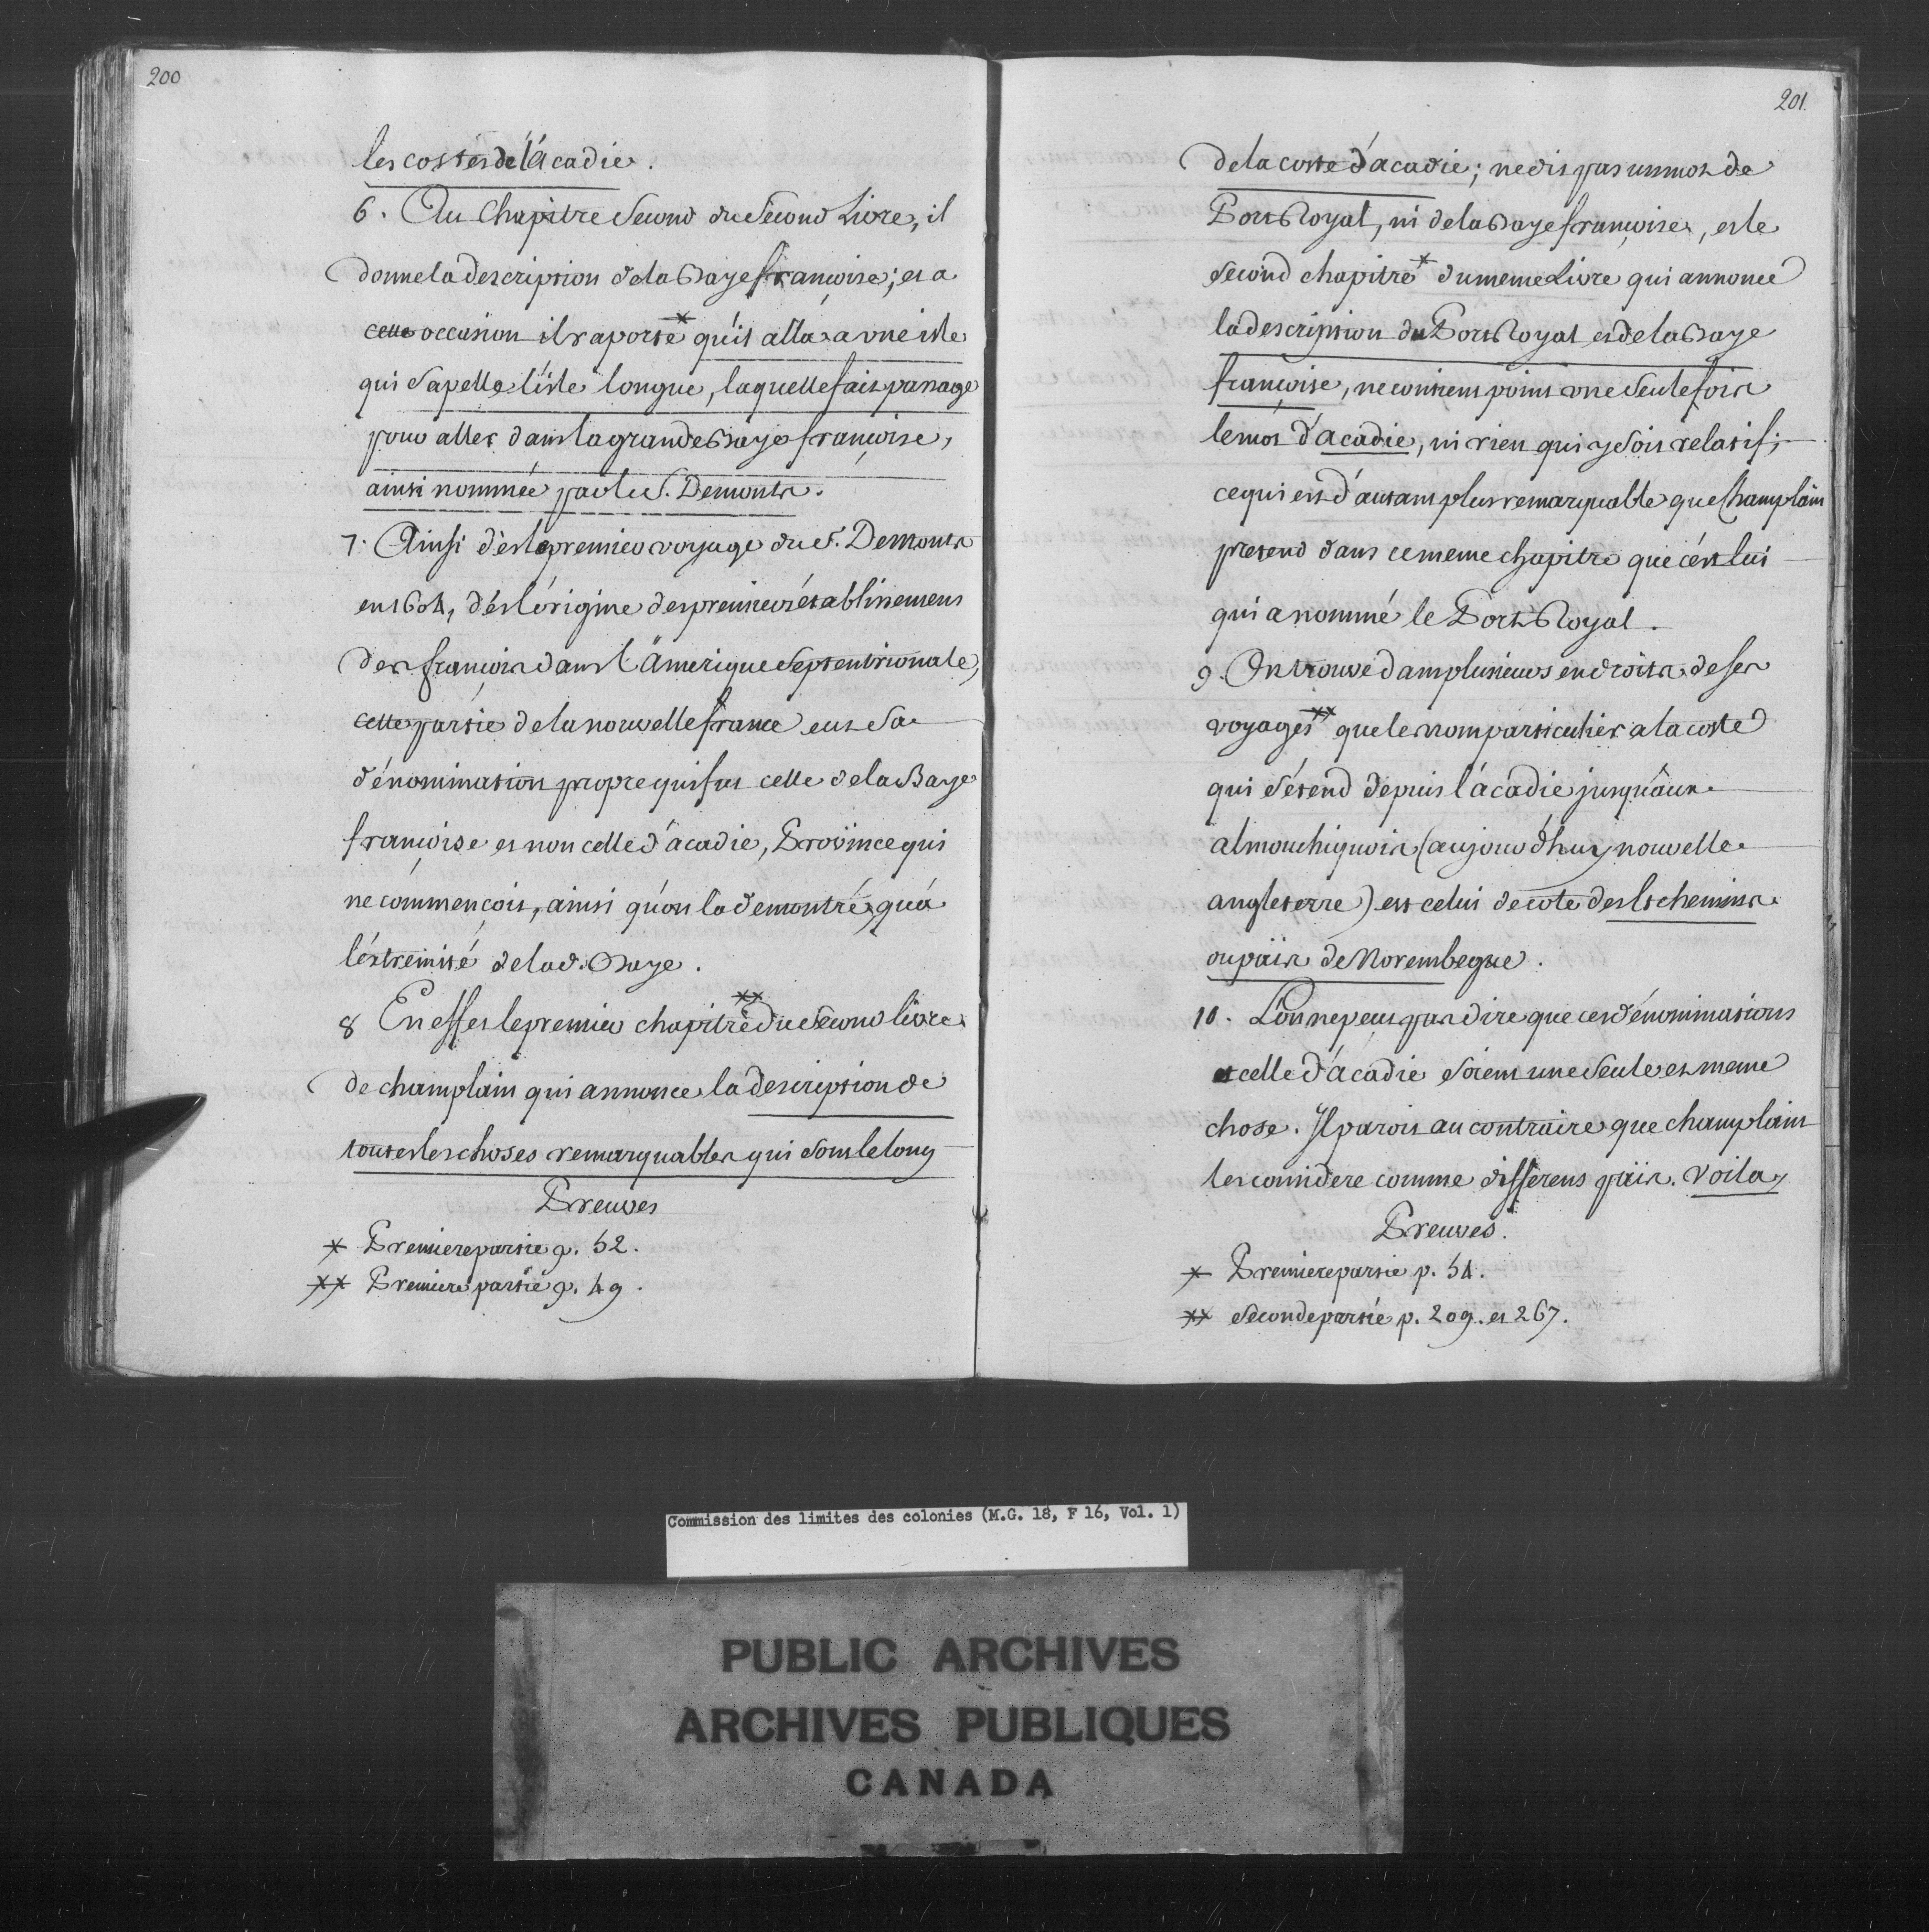 200
les costes de l'acadie.
6. Au Chapitre Second du Second Livre, il
donne la description de la Baye françoise; et a
cette occasion il raporte* qu'il alla a une isle
qui s'apelle l'isle longue, laquelle fait passage
pour aller dans la grande Baye françoise,
ainsi nommée par le S. Demonts.
7. Ainsi dès le premier voyage du S. Demonts
en 1604, dès l'origine des premiers établissemens
des françois dans l'Amerique Septentrionale,
cette partie de la nouvelle france eut sa
dénomination propre qui fut celle de la Baye
françoise et non celle d'acadie, Province qui
ne commençoit, ainsi qu'on l'a demontré, qu'a
l'extremité de lad. Baye.
8 En effet le premier chapitre** du Second livre
de champlain qui annonce la description de
toutes les choses remarquables qui sont le long
Preuves
* Premiere partie p. 52.
** Premiere partie p. 49.
201.
de la coste d'acadie; ne dit pas un mot de
Port Royal, ni de la Baye françoise, et le
Second chapitre* du meme Livre qui annonce
la description du Port Royal et de la Baye
françoise, ne contient point une seule fois
le mot d'acadie, ni rien qui y soit relatif;
ce qui est d'autant plus remarquable que Champlain
pretend dans ce meme chapitre que c'est lui
qui a nommé le Port Royal.
9. On trouve dans plusieurs endroits de ses
voyages** que le nom particulier a la coste
qui s'étend depuis l'acadie jusqu'aux
almouchiquois (aujourd'huy nouvelle
angleterre) est celui de cote des Etchemins
ou païs de Norembegue.
10. L'on ne peut pas dire que ces dénominations
et celle d'acadie soient une seule et meme
chose. Il paroit au contraire que champlain
les considere comme differens païs. Voila,
Preuves.
* Premiere partie p. 54.
** Seconde partie p. 209. et 267.
Commission des limites des colonies (M.G. 18, F 16, Vol. 1)
PUBLIC ARCHIVES
ARCHIVES PUBLIQUES
CANADA